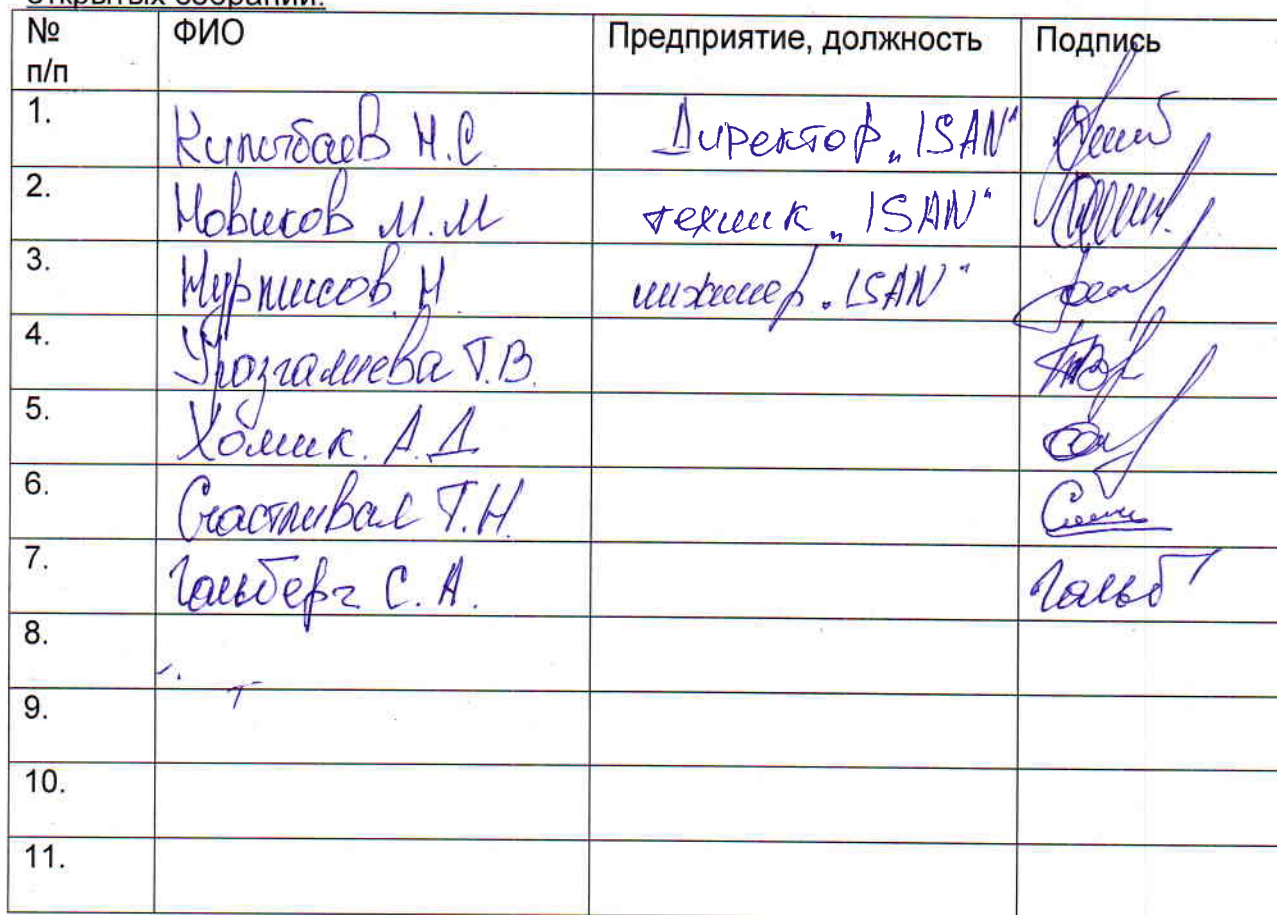 открытых собраний.
№ п/п ФИО Предприятие, должность Подпись
1. Кипчбаев Н.С Директор „ISAN"
2. Новиков М.М техник „ISAN"
3. Нурписов Н инженер „ISAN"
4. Уразгалиева Т.В.
5. Хомик. А.Д
6. Счастливая Т.Н.
7. Гальберг С.А. Гальб
8.
9.
10.
11.